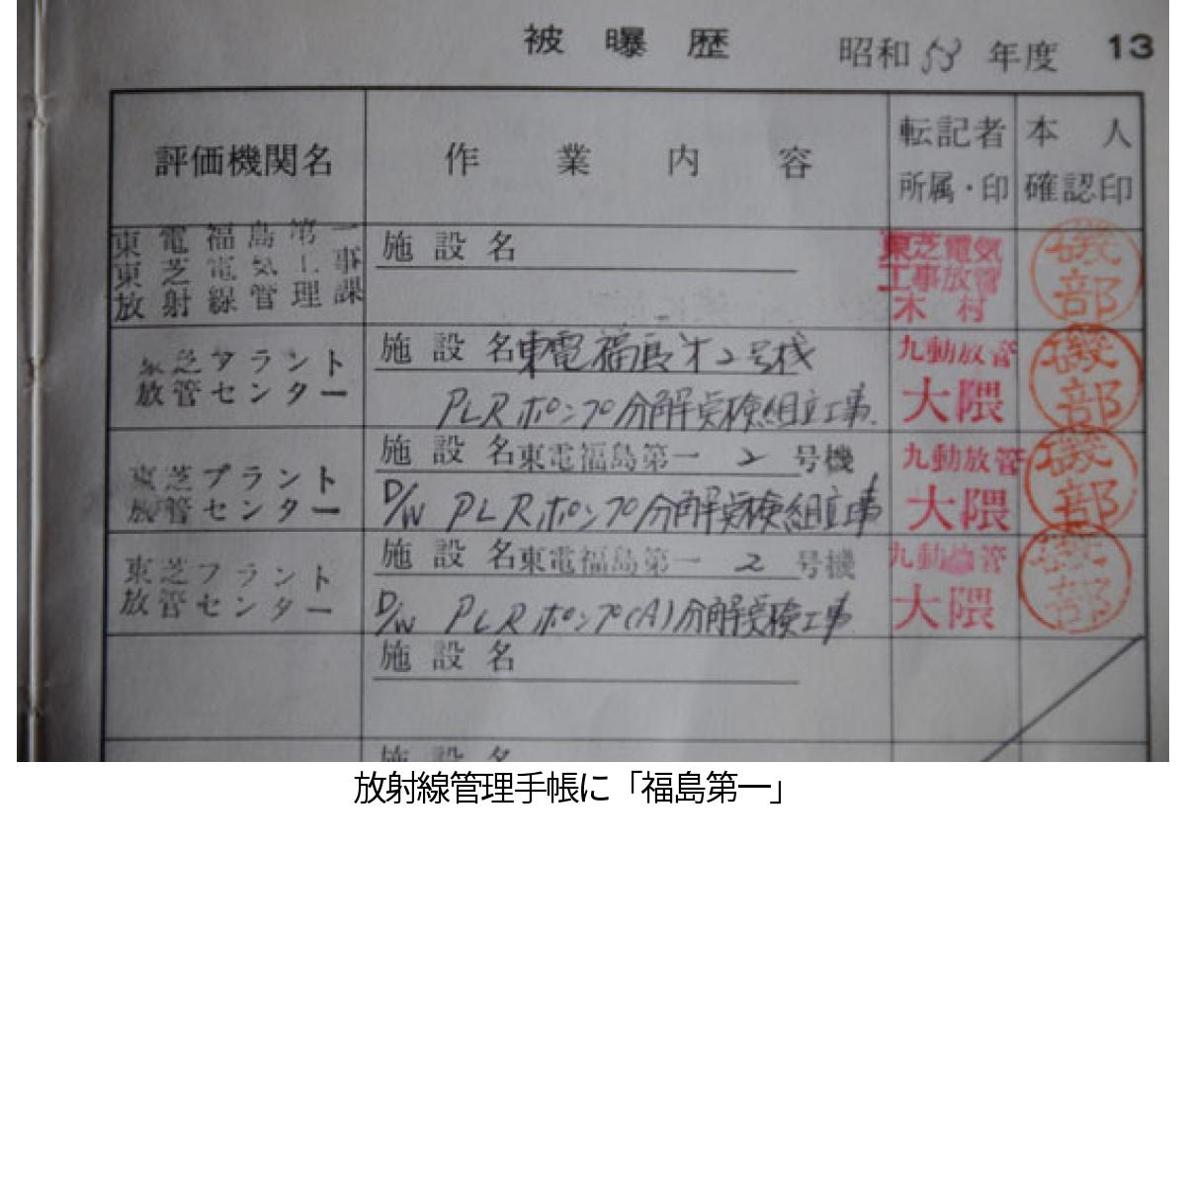 被曝歴 昭和53年度 13
評価機関名 作業内容 転記者所属・印 本人確認印
東電福島第一
東芝電気工事
放射線管理課
施設名
東芝電気
工事放管
木村
磯部
東芝プラント
放管センター
施設名 東電福島 2号機
PLRポンプ分解点検組立工事
九動放管
大隈
磯部
東芝プラント
放管センター
施設名 東電福島第一 2号機
D/W PLRポンプ分解点検組立工事
九動放管
大隈
磯部
東芝プラント
放管センター
施設名 東電福島第一 2号機
D/W PLRポンプ(A)分解点検工事
九動放管
大隈
磯部
施設名
施設名
放射線管理手帳に「福島第一」